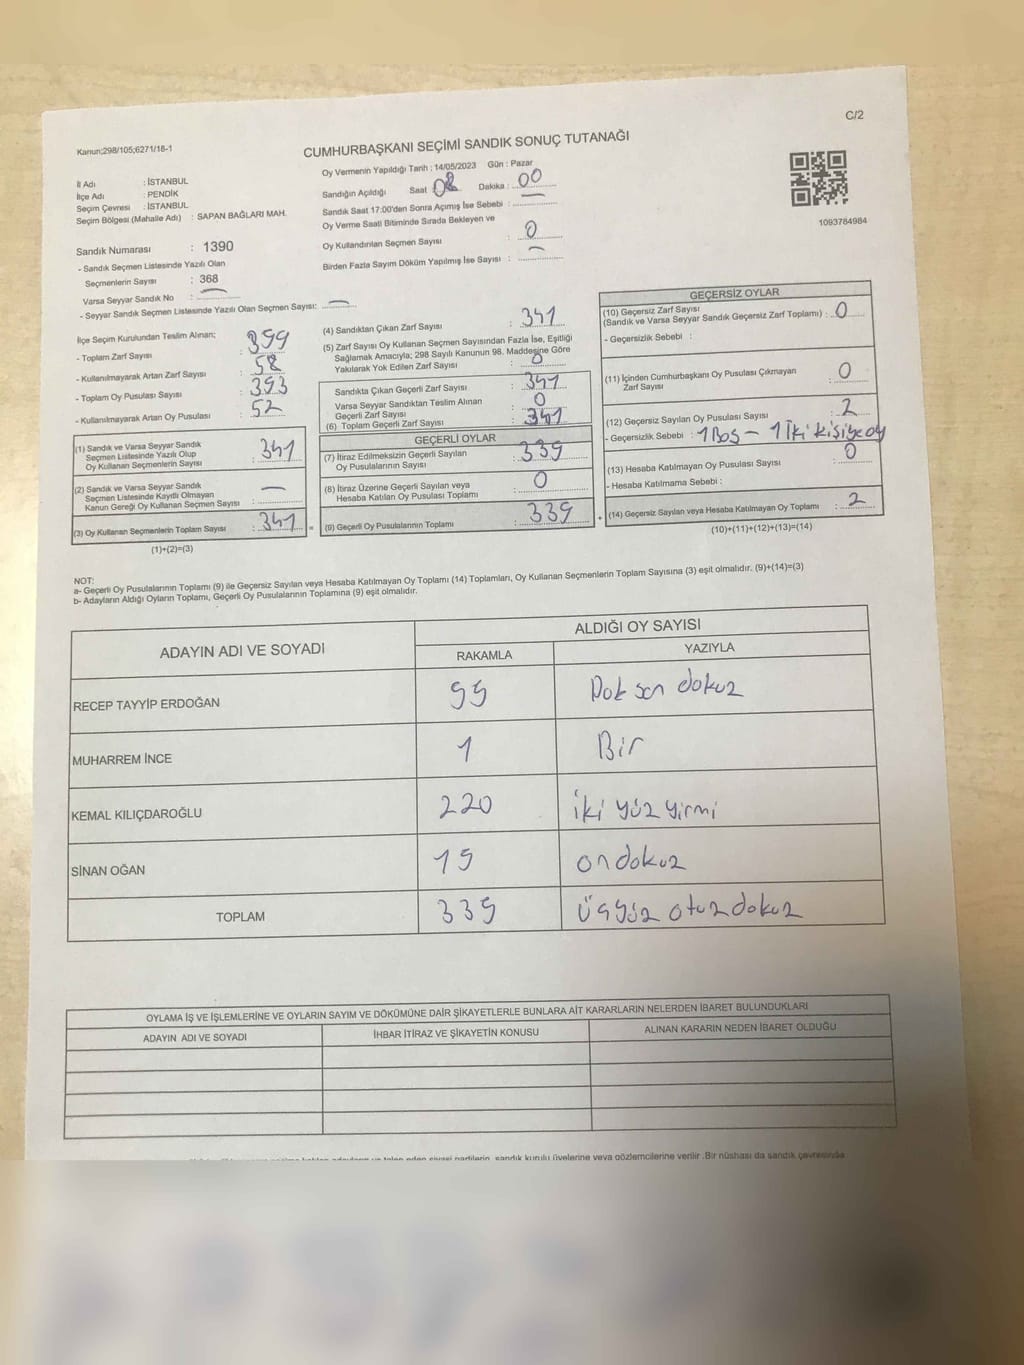 C/2
Kanun;298/105;6271/18-1
CUMHURBAŞKANI SEÇİMİ SANDIK SONUÇ TUTANAĞI
1093784984
İl Adı : İSTANBUL
İlçe Adı : PENDİK
Seçim Çevresi : İSTANBUL
Seçim Bölgesi (Mahalle Adı) : SAPAN BAĞLARI MAH.
Sandık Numarası : 1390
- Sandık Seçmen Listesinde Yazılı Olan
Seçmenlerin Sayısı : 368
Varsa Seyyar Sandık No : —
- Seyyar Sandık Seçmen Listesinde Yazılı Olan Seçmen Sayısı: —
Oy Vermenin Yapıldığı Tarih : 14/05/2023 Gün : Pazar
Sandığın Açıldığı Saat : 08 Dakika : 00
Sandık Saat 17:00'den Sonra Açımış İse Sebebi : —
Oy Verme Saati Bitiminde Sırada Bekleyen ve
Oy Kullandırılan Seçmen Sayısı : 0
Birden Fazla Sayım Döküm Yapılmış İse Sayısı : —
İlçe Seçim Kurulundan Teslim Alınan;
- Toplam Zarf Sayısı : 399
- Kullanılmayarak Artan Zarf Sayısı : 58
- Toplam Oy Pusulası Sayısı : 393
- Kullanılmayarak Artan Oy Pusulası : 52
(1) Sandık ve Varsa Seyyar Sandık
Seçmen Listesinde Yazılı Olup
Oy Kullanan Seçmenlerin Sayısı : 341
(2) Sandık ve Varsa Seyyar Sandık
Seçmen Listesinde Kayıtlı Olmayan
Kanun Gereği Oy Kullanan Seçmen Sayısı : —
(3) Oy Kullanan Seçmenlerin Toplam Sayısı : 341 =
(1)+(2)=(3)
(4) Sandıktan Çıkan Zarf Sayısı : 341
(5) Zarf Sayısı Oy Kullanan Seçmen Sayısından Fazla İse, Eşitliği
Sağlamak Amacıyla; 298 Sayılı Kanunun 98. Maddesine Göre
Yakılarak Yok Edilen Zarf Sayısı : 0
Sandıkta Çıkan Geçerli Zarf Sayısı : 341
Varsa Seyyar Sandıktan Teslim Alınan
Geçerli Zarf Sayısı : 0
(6) Toplam Geçerli Zarf Sayısı : 341
GEÇERLİ OYLAR
(7) İtiraz Edilmeksizin Geçerli Sayılan
Oy Pusulalarının Sayısı : 339
(8) İtiraz Üzerine Geçerli Sayılan veya
Hesaba Katılan Oy Pusulası Toplamı : 0
(9) Geçerli Oy Pusulalarının Toplamı : 339 +
GEÇERSİZ OYLAR
(10) Geçersiz Zarf Sayısı
(Sandık ve Varsa Seyyar Sandık Geçersiz Zarf Toplamı) : 0
- Geçersizlik Sebebi :
(11) İçinden Cumhurbaşkanı Oy Pusulası Çıkmayan
Zarf Sayısı : 0
(12) Geçersiz Sayılan Oy Pusulası Sayısı : 2
- Geçersizlik Sebebi : 1 Boş - 1 İki kişiye oy
(13) Hesaba Katılmayan Oy Pusulası Sayısı : 0
- Hesaba Katılmama Sebebi :
(14) Geçersiz Sayılan veya Hesaba Katılmayan Oy Toplamı : 2
(10)+(11)+(12)+(13)=(14)
NOT:
a- Geçerli Oy Pusulalarının Toplamı (9) ile Geçersiz Sayılan veya Hesaba Katılmayan Oy Toplamı (14) Toplamları, Oy Kullanan Seçmenlerin Toplam Sayısına (3) eşit olmalıdır. (9)+(14)=(3)
b- Adayların Aldığı Oyların Toplamı, Geçerli Oy Pusulalarının Toplamına (9) eşit olmalıdır.
ADAYIN ADI VE SOYADI
ALDIĞI OY SAYISI
RAKAMLA YAZIYLA
RECEP TAYYİP ERDOĞAN 99 Doksan dokuz
MUHARREM İNCE 1 Bir
KEMAL KILIÇDAROĞLU 220 iki yüz yirmi
SİNAN OĞAN 19 on dokuz
TOPLAM 339 üçyüz otuz dokuz
OYLAMA İŞ VE İŞLEMLERİNE VE OYLARIN SAYIM VE DÖKÜMÜNE DAİR ŞİKAYETLERLE BUNLARA AİT KARARLARIN NELERDEN İBARET BULUNDUKLARI
ADAYIN ADI VE SOYADI İHBAR İTİRAZ VE ŞİKAYETİN KONUSU ALINAN KARARIN NEDEN İBARET OLDUĞU
sandık kurulu üyelerine veya gözlemcilerine verilir .Bir nüshası da sandık çevresinde